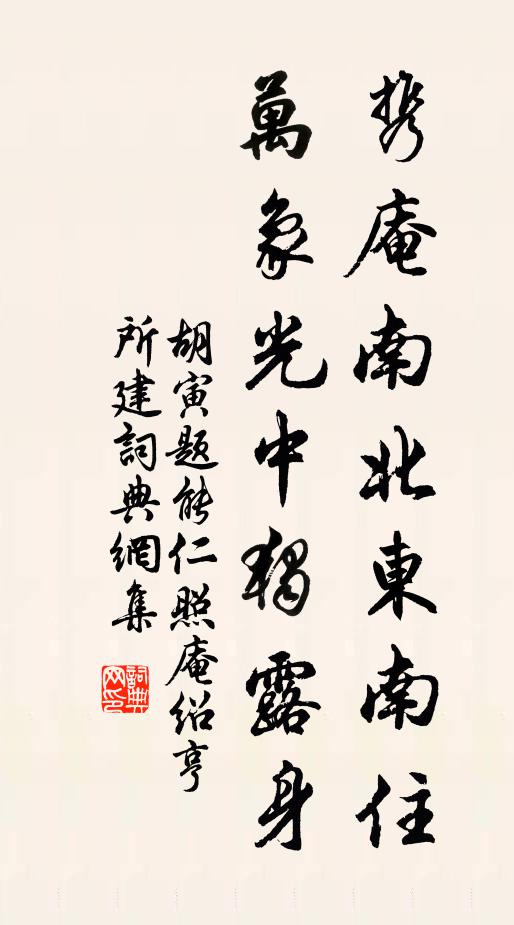 携庵南北東南住
萬象光中獨露身
胡寅題能仁照庵紹亨
所建詞典網集
詞典網印